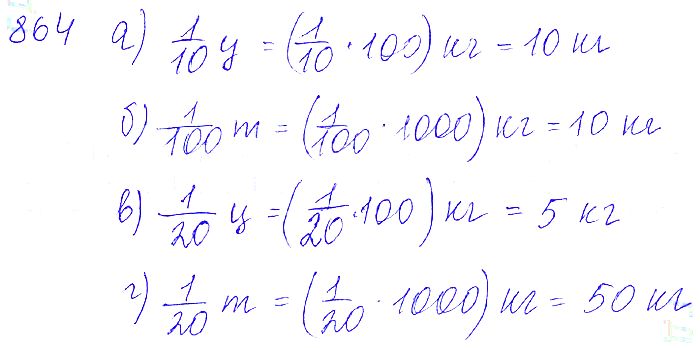 864 а) 1/10 ц = (1/10 · 100) кг = 10 кг
б) 1/100 т = (1/100 · 1000) кг = 10 кг
в) 1/20 ц = (1/20 · 100) кг = 5 кг
г) 1/20 т = (1/20 · 1000) кг = 50 кг